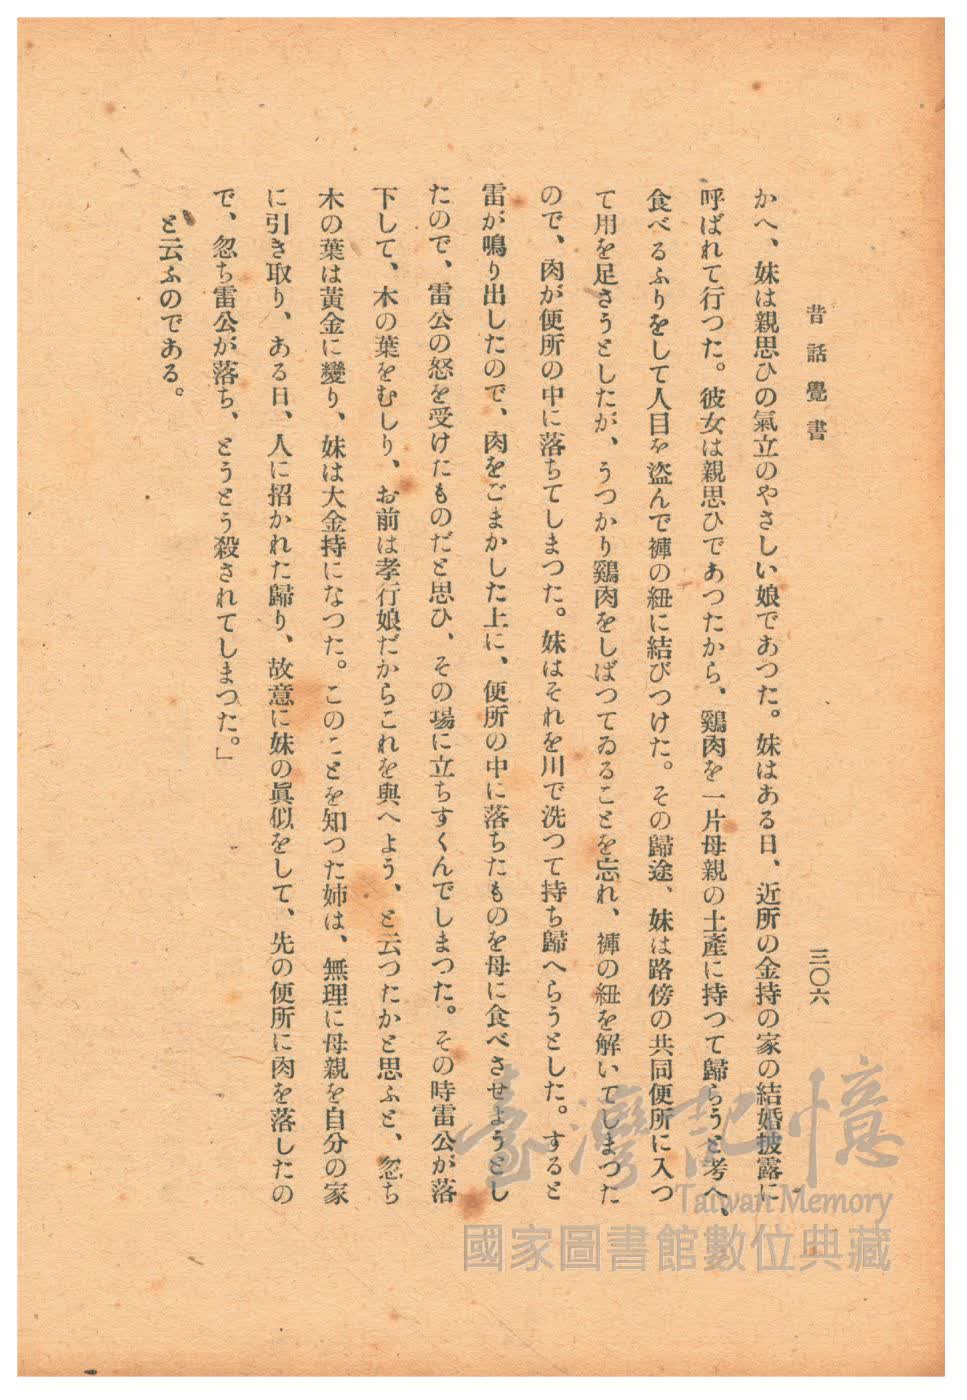 昔話覺書
三〇六
かへ、妹は親思ひの氣立のやさしい娘であつた。妹はある日、近所の金持の家の結婚披露に
呼ばれて行つた。彼女は親思ひであつたから、鷄肉を一片母親の土產に持つて歸らうと考へ、
食べるふりをして人目を盜んで褲の紐に結びつけた。その歸途、妹は路傍の共同便所に入つ
て用を足さうとしたが、うつかり鷄肉をしばつてゐることを忘れ、褲の紐を解いてしまつた
ので、肉が便所の中に落ちてしまつた。妹はそれを川で洗つて持ち歸へらうとした。すると
雷が鳴り出したので、肉をごまかした上に、便所の中に落ちたものを母に食べさせようとし
たので、雷公の怒を受けたものだと思ひ、その場に立ちすくんでしまつた。その時雷公が落
下して、木の葉をむしり、お前は孝行娘だからこれを與へよう、と云つたかと思ふと、忽ち
木の葉は黃金に變り、妹は大金持になつた。このことを知つた姉は、無理に母親を自分の家
に引き取り、ある日、人に招かれた歸り、故意に妹の眞似をして、先の便所に肉を落したの
で、忽ち雷公が落ち、とうとう殺されてしまつた。」
と云ふのである。
臺灣記憶
Taiwan Memory
國家圖書館數位典藏